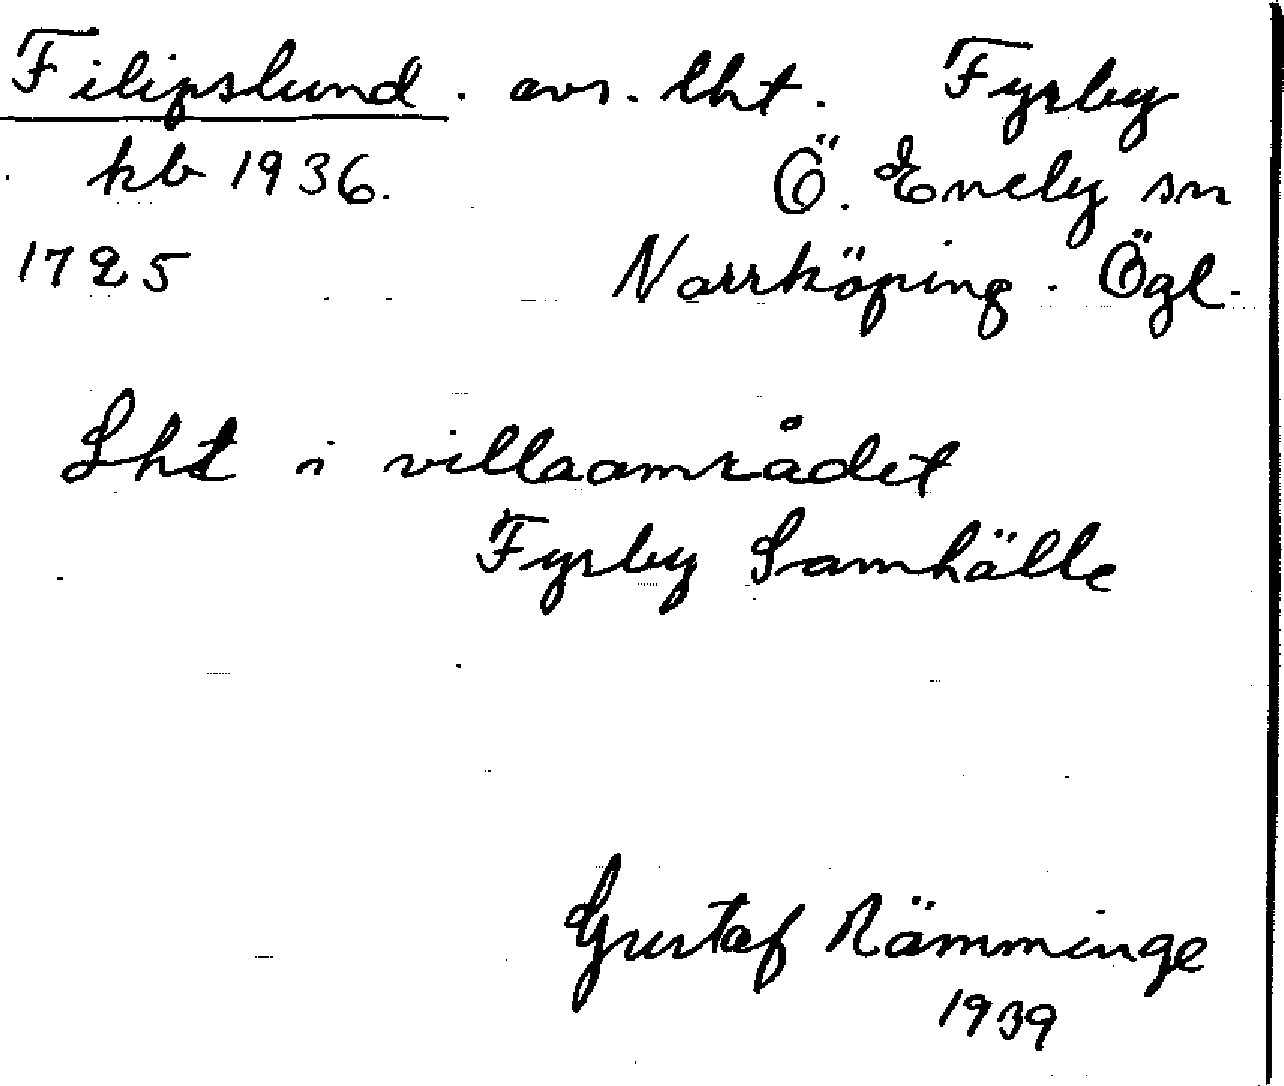 Filipslund. avs. lht. Fyrby
kb 1936. Ö. Eneby sn
1725 Norrköping. Ögl.
Lht i villaområdet
Fyrby Samhälle
Gustaf Rämminge
1939